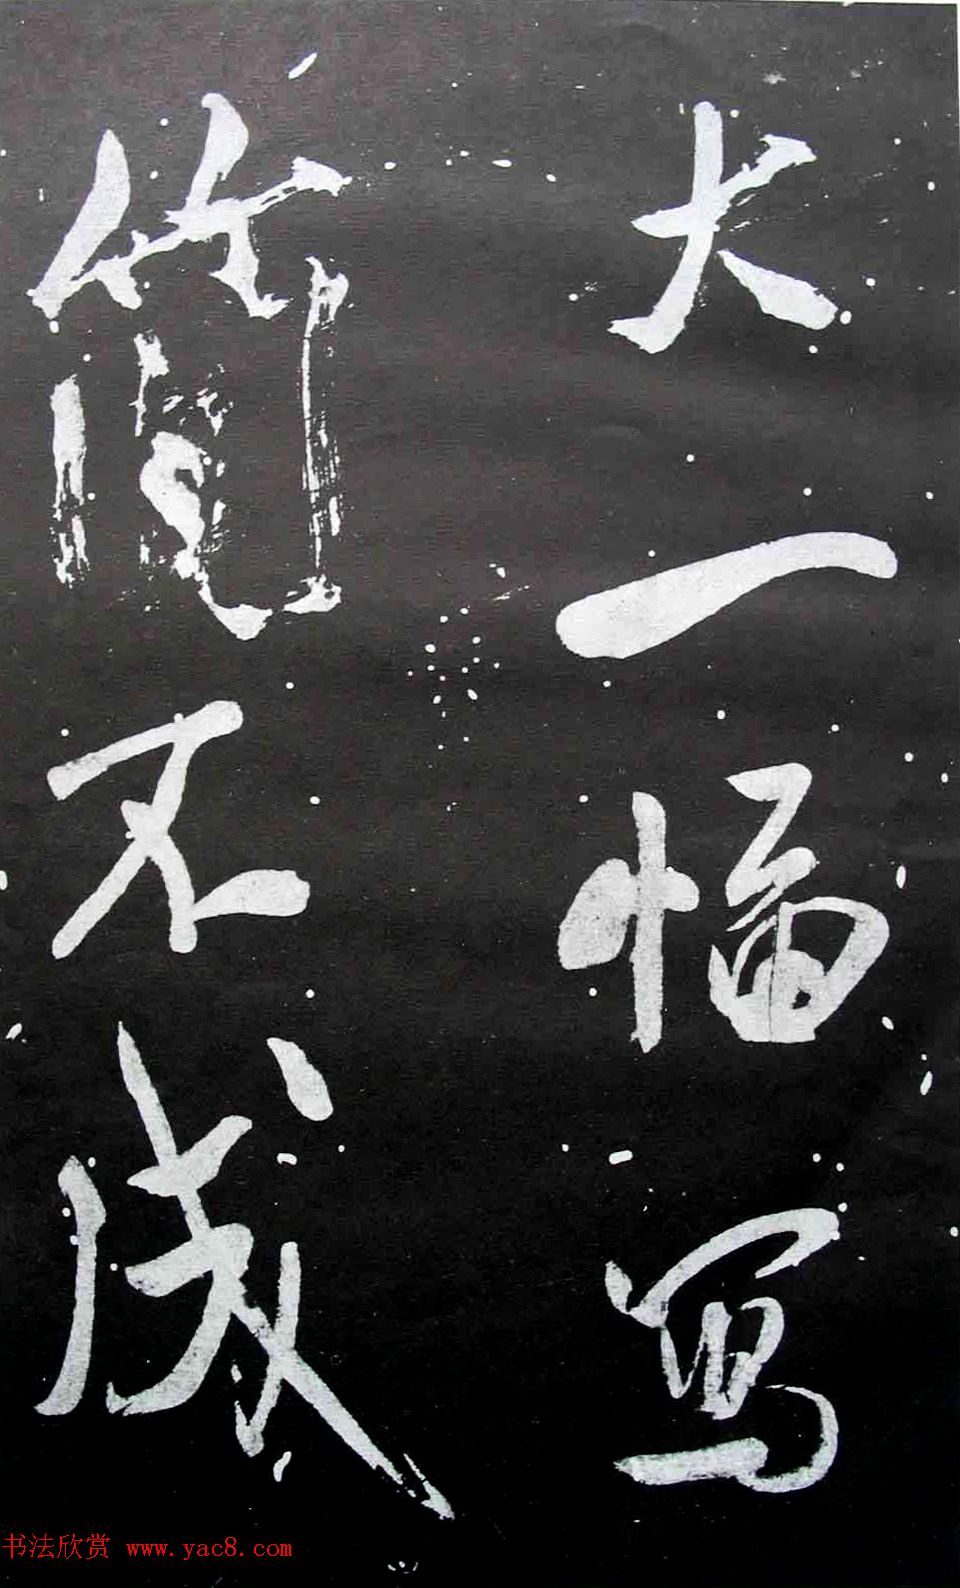 大一幅写
简不成
书法欣赏 www.yac8.com